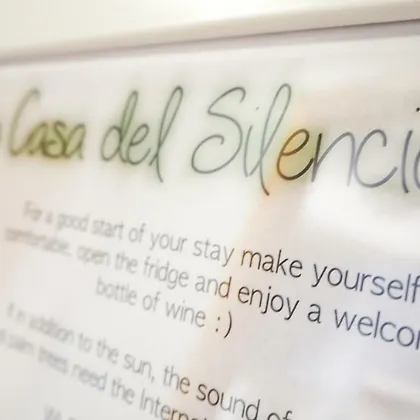 Casa del Silenci
For a good start of your stay make yourself
comfortable, open the fridge and enjoy a welco
bottle of wine :)
in addition to the sun, the sound of
trees need the Intern